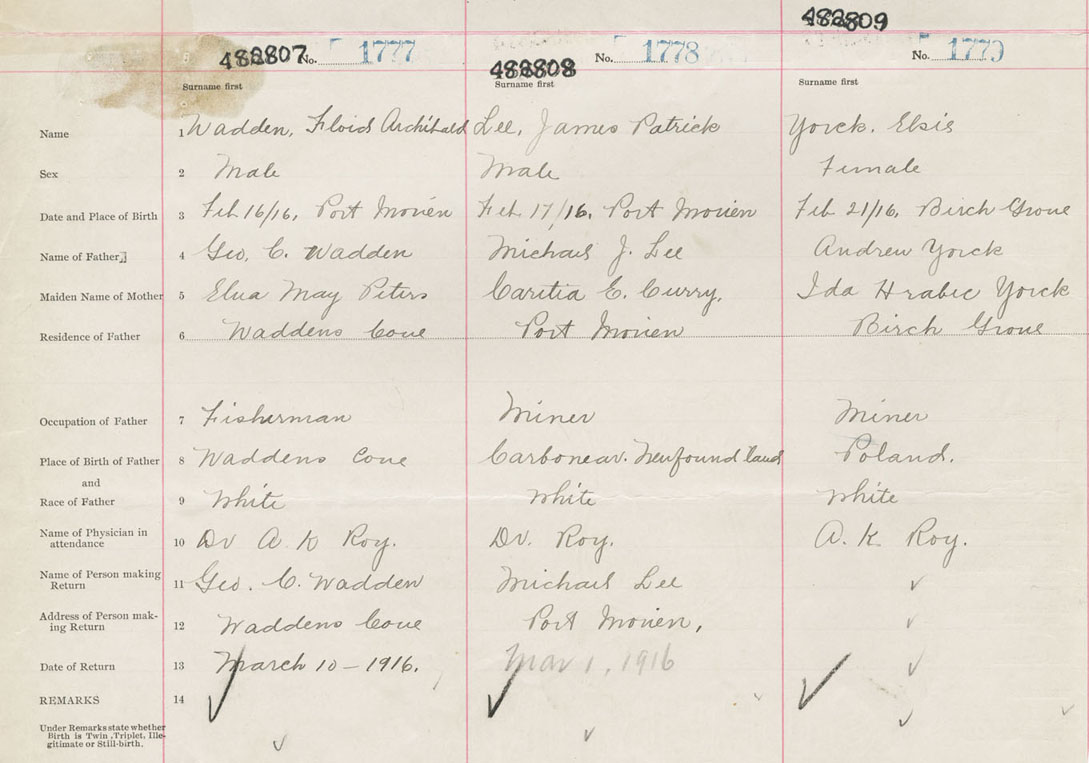 482809
482807 No. 1777
482808 No. 1778
No. 1779
Surname first Surname first Surname first
Name 1 Wadden, Floid Archibald Lee, James Patrick Yorck. Elsie
Sex 2 Male Male Female
Date and Place of Birth 3 Feb 16/16, Port Morien Feb 17/16, Port Morien Feb 21/16, Birch Grove
Name of Father 4 Geo, C. Wadden Michael J. Lee Andrew Yorck
Maiden Name of Mother 5 Elva May Peters Caritia E. Curry, Ida Hrabec Yorck
Residence of Father 6 Waddens Cove Port Morien Birch Grove
Occupation of Father 7 Fisherman Miner Miner
Place of Birth of Father 8 Waddens Cove Carbonear. Newfoundland Poland.
and
Race of Father 9 White White White
Name of Physician in
attendance 10 Dr A. K Roy. Dr. Roy. A. K Roy.
Name of Person making
Return 11 Geo. C. Wadden Michael Lee
Address of Person mak-
ing Return 12 Waddens Cove Port Morien,
Date of Return 13 March 10-1916. Mar 1, 1916
REMARKS 14
Under Remarks state whether
Birth is Twin, Triplet, Ille-
gitimate or Still-birth.